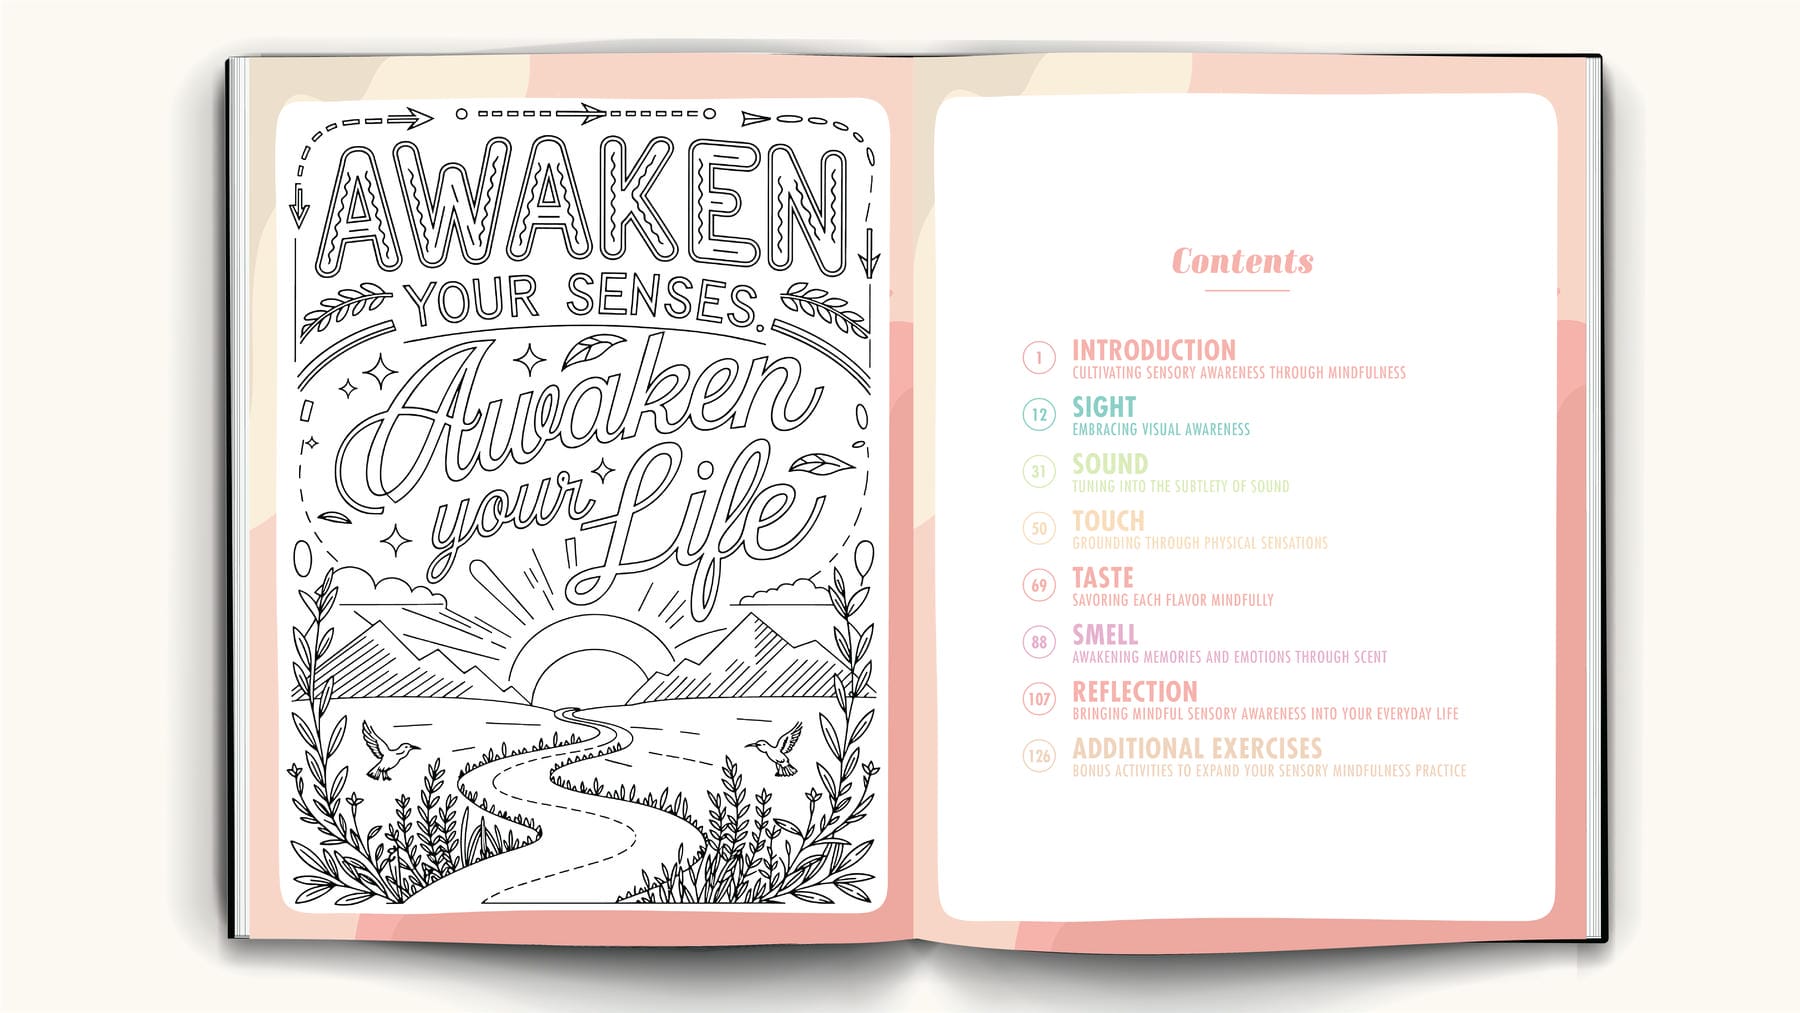 AWAKEN
YOUR SENSES.
Awaken
your Life
Contents
1 INTRODUCTION
CULTIVATING SENSORY AWARENESS THROUGH MINDFULNESS
12 SIGHT
EMBRACING VISUAL AWARENESS
31 SOUND
TUNING INTO THE SUBTLETY OF SOUND
50 TOUCH
GROUNDING THROUGH PHYSICAL SENSATIONS
69 TASTE
SAVORING EACH FLAVOR MINDFULLY
88 SMELL
AWAKENING MEMORIES AND EMOTIONS THROUGH SCENT
107 REFLECTION
BRINGING MINDFUL SENSORY AWARENESS INTO YOUR EVERYDAY LIFE
126 ADDITIONAL EXERCISES
BONUS ACTIVITIES TO EXPAND YOUR SENSORY MINDFULNESS PRACTICE